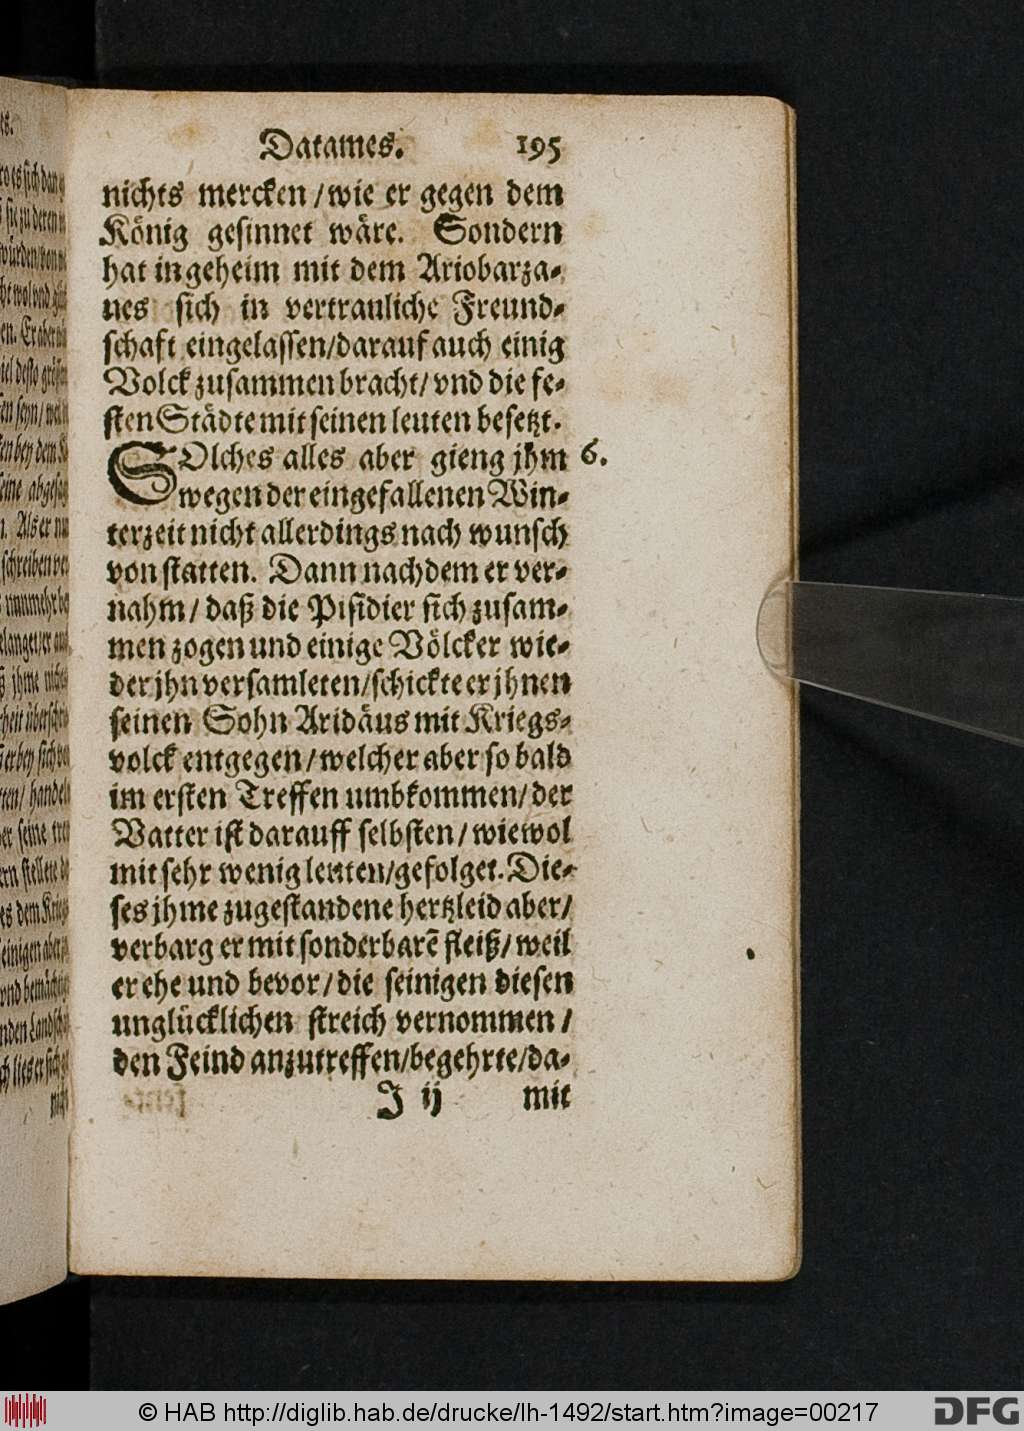 Datames. 195
nichts mercken / wie er gegen dem
König gesinnet wäre. Sondern
hat ingeheim mit dem Ariobarza-
nes sich in vertrauliche Freund-
schaft eingelassen/darauf auch einig
Volck zusammen bracht/ vnd die fe-
sten Städte mit seinen leuten besetzt.
SOlches alles aber gieng jhm 6.
wegen der eingefallenen Win-
terzeit nicht allerdings nach wunsch
von statten. Dann nachdem er ver-
nahm / daß die Pisidier sich zusam-
men zogen und einige Völcker wie-
der jhn versamleten/schickte er jhnen
seinen Sohn Aridäus mit Kriegs-
volck entgegen / welcher aber so bald
im ersten Treffen umbkommen/ der
Vatter ist darauff selbsten / wiewol
mit sehr wenig leuten/gefolget. Die-
ses jhme zugestandene hertzleid aber/
verbarg er mit sonderbarē fleiß/ weil
er ehe und bevor / die seinigen diesen
unglücklichen streich vernommen /
den Feind anzutreffen/begehrte/da-
J ij mit
© HAB http://diglib.hab.de/drucke/lh-1492/start.htm?image=00217
DFG